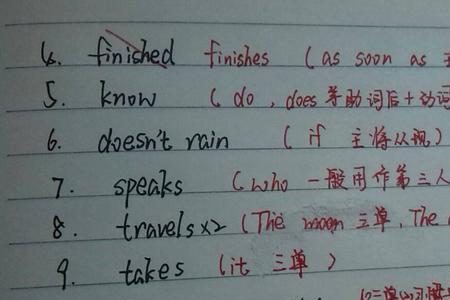 4. finished finishes (as soon as 主
5. know (do, does 等助词后+动词
6. doesn't rain (if 主将从现)
7. speaks (who 一般用作第三人
8. travels×2 (The moon 三单, The
9. takes (it 三单)